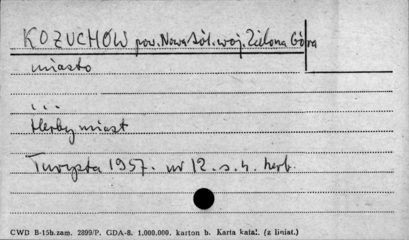 KOZUCHÓW pow. Nowa Sól. woj. Zielona Góra
miasto
...
Herby miast
Turysta 1957. nr 12. s. 4. herb.
CWD B-15b.zam. 2899/P. GDA-8. 1.000.000. karton b. Karta katal. (z liniat.)